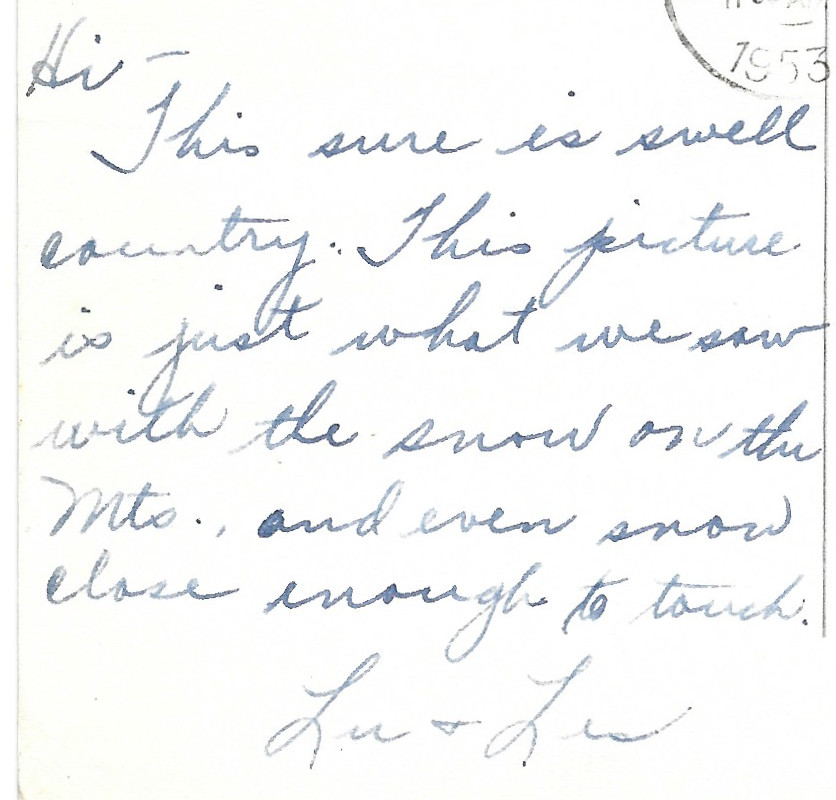 1953
Hi —
This sure is swell
country. This picture
is just what we saw
with the snow on the
Mts., and even snow
close enough to touch.
Lu + Les